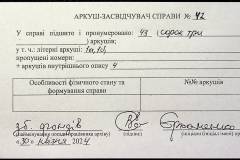 АРКУШ-ЗАСВІДЧУВАЧ СПРАВИ № 42
У справі підшито і пронумеровано: 43 (сорок три
) аркушів;
у т.ч.: літерні аркуші:
пропущені номери:
+ аркушів внутрішнього опису 4
Особливості фізичного стану та формування справи
№№ аркушів
зб. фондів
(підпис)
«30» квітня 2024